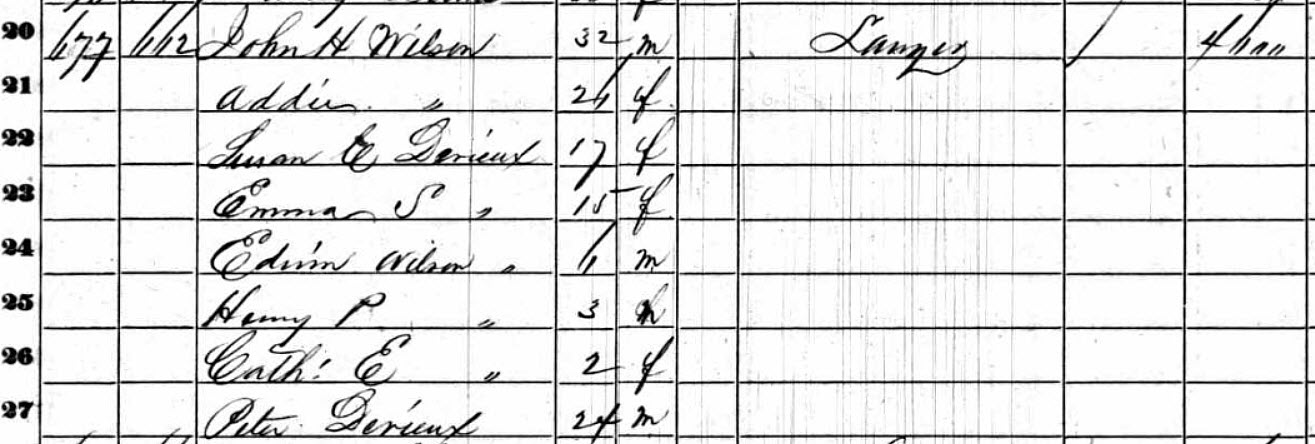 20 677 612 John H Wilson 32 m Lawyer / 4000
21 Addie " 26 f
22 Susan E Devieux 17 f
23 Emma S " 15 f
24 Edwin Wilson " 6 m
25 Henry P " 3 m
26 Cath: E " 2 f
27 Peter Devieux 24 m